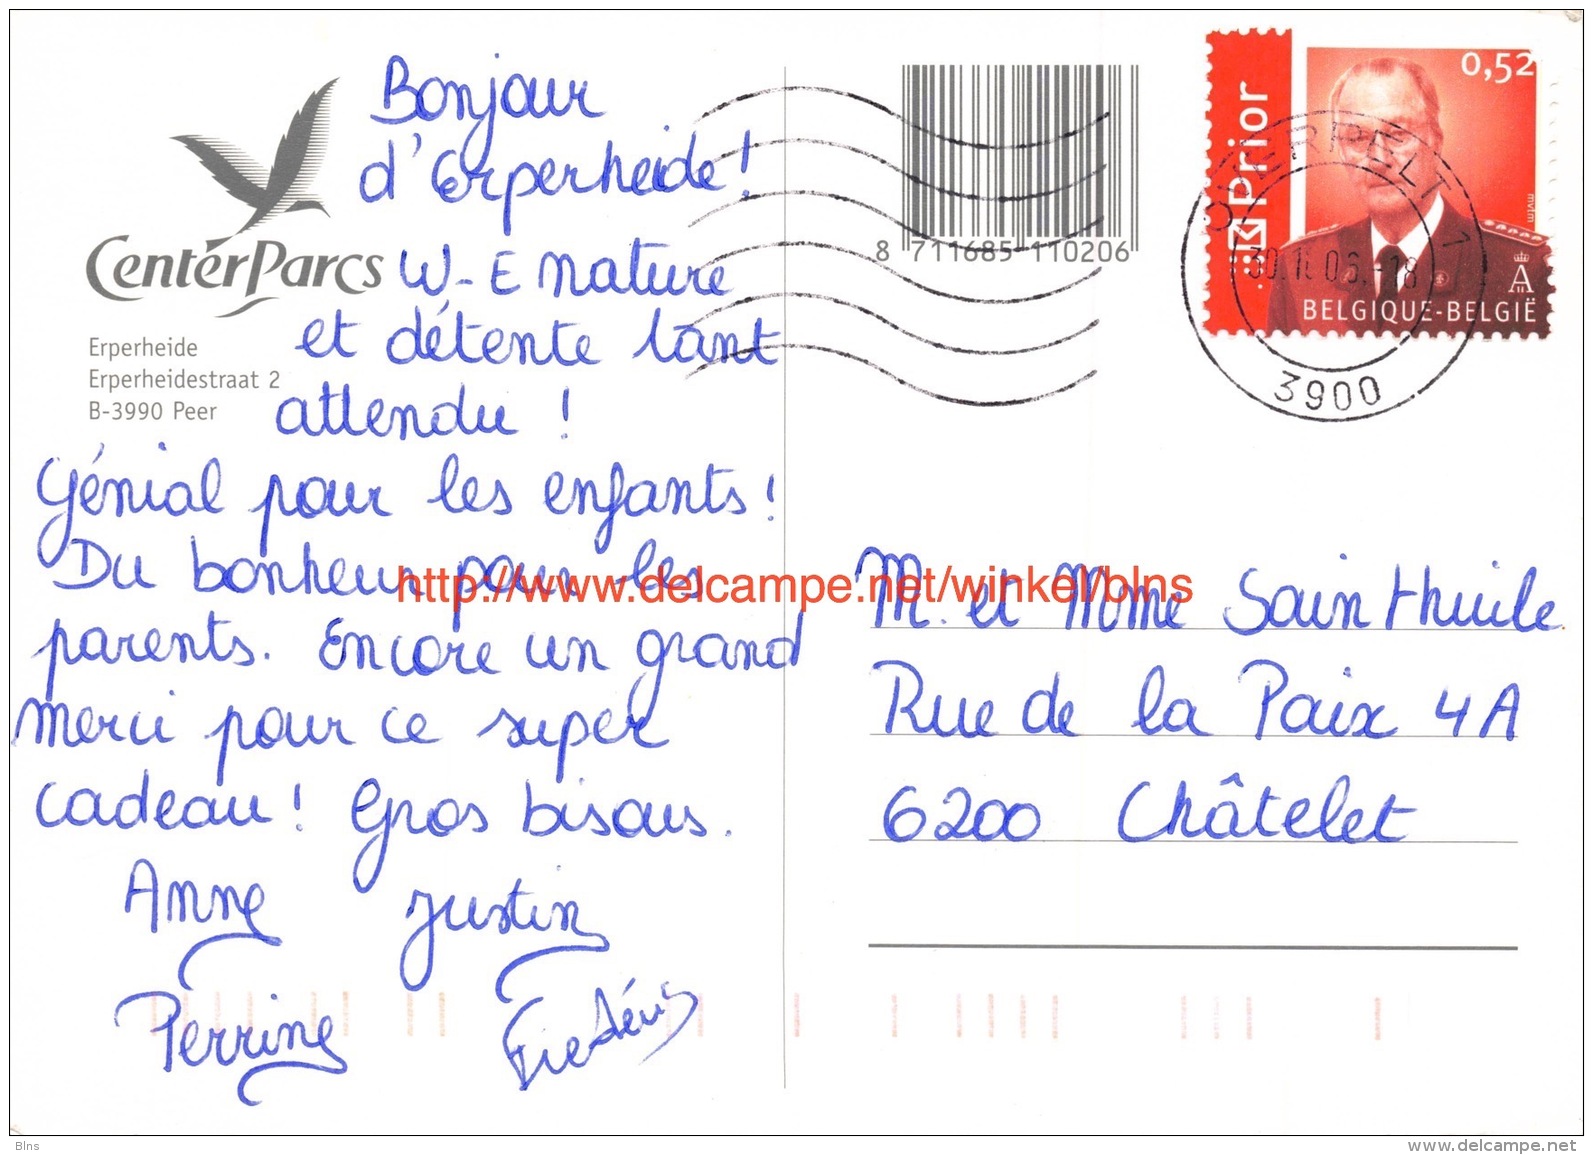 Bonjour
d'Erperheide!
CenterParcs
W-E nature
et détente tant
attendu !
Erperheide
Erperheidestraat 2
B-3990 Peer
Génial pour les enfants!
Du bonheur pour les
parents. Encore un grand
merci pour ce super
cadeau! Gros bisous.
Anne Justin
Perrine
8 711685 110206
Prior
0,52
mvtm
BELGIQUE-BELGIË
OVERPELT 1
3900
http://www.delcampe.net/winkel/blns
M. et Mme Sainthuile
Rue de la Paix 4A
6200 Châtelet
Blns
www.delcampe.net